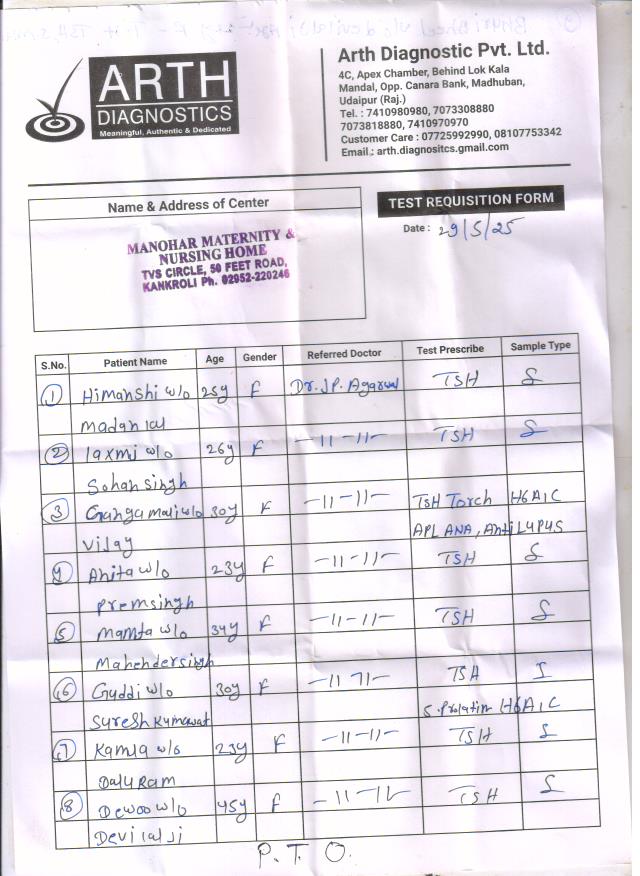 ARTH
DIAGNOSTICS
Meaningful, Authentic & Dedicated
Arth Diagnostic Pvt. Ltd.
4C, Apex Chamber, Behind Lok Kala
Mandal, Opp. Canara Bank, Madhuban,
Udaipur (Raj.)
Tel. : 7410980980, 7073308880
7073818880, 7410970970
Customer Care : 07725992990, 08107753342
Email.: arth.diagnositcs.gmail.com
Name & Address of Center
TEST REQUISITION FORM
Date : 29/5/25
MANOHAR MATERNITY &
NURSING HOME
TVS CIRCLE, 50 FEET ROAD,
KANKROLI Ph. 02952-220246
S.No. Patient Name Age Gender Referred Doctor Test Prescribe Sample Type
1 Himanshi w/o 25y F Dr. J.P. Agarwal TSH S
madan lal
2 laxmi w/o 26y F -11-11- TSH S
Sohan singh
3 Ganga mali w/o 30y F -11-11- TSH Torch H6A1C
Vijay APL ANA, Anti LUPUS
4 Anita w/o 23y F -11-11- TSH S
premsingh
5 mamta w/o 34y F -11-11- TSH S
Mahendersingh
6 Guddi w/o 30y F -11-11- TSH S
Suresh Kumawat S. Prolatin H6A1C
7 Kamla w/o 23y F -11-11- TSH S
Dalu Ram
8 Dewoo w/o 45y F -11-11- TSH S
Devi lal ji
P. T. O.